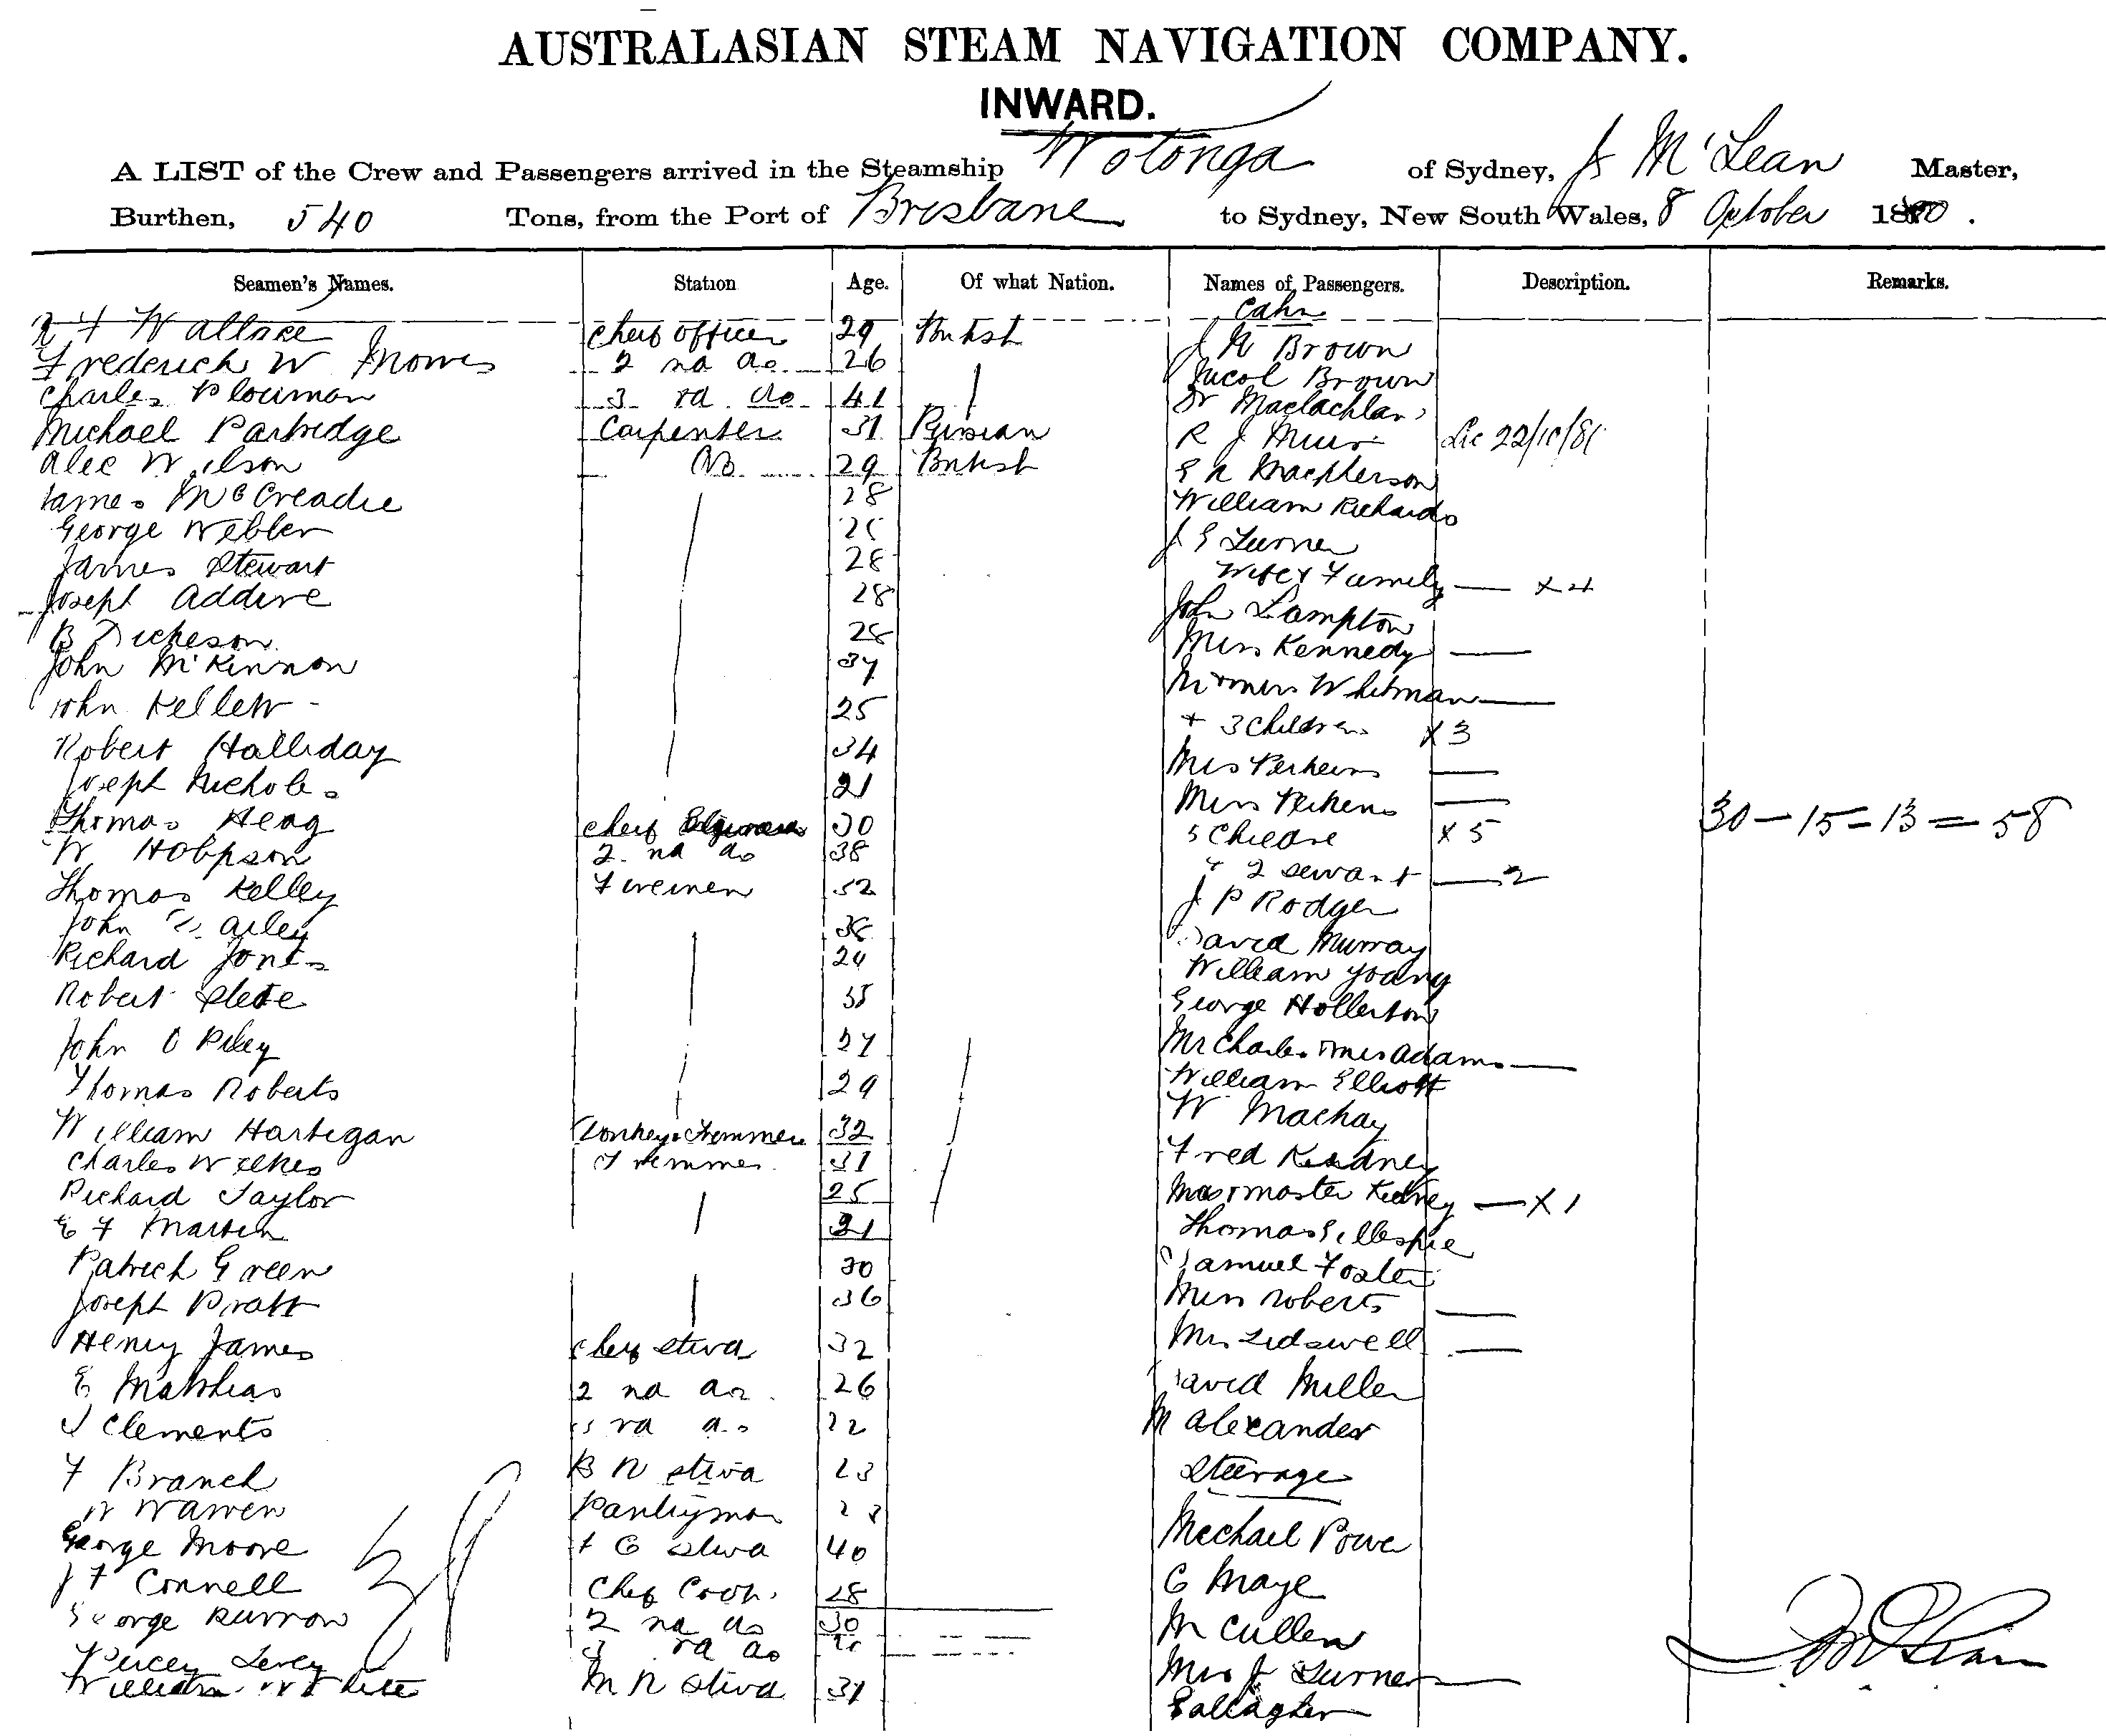 AUSTRALASIAN STEAM NAVIGATION COMPANY.
INWARD.
A LIST of the Crew and Passengers arrived in the Steamship Wotonga of Sydney, J McLean Master,
Burthen, 540 Tons, from the Port of Brisbane to Sydney, New South Wales, 8 October 1880.
Seamen's Names. Station Age. Of what Nation. Names of Passengers. Description. Remarks.
Cabin
Wallace Chief Officer 29 British J Brown
Frederick W 2nd do 26 Nicol Brown
Charles Plowman 3rd do 41 Dr Maclachlan
Michael Partridge Carpenter 31 R J Muir
Alec Wilson AB 29 British Macpherson
James McCreadie 28 William Richards
George Webber J E Turner
James Stewart 28 Wife & Family — x 4
Joseph Addive 28 John Lampton
B Dickeson 28 Miss Kennedy —
John McKinnon 37 Mr & Mrs Whitman —
John Kellett 25 + 3 Children x 3
Robert Halliday 34 Mrs Perkins —
Joseph Nichols 21 Miss Perkins —
Thomas Heag Chief 30 5 Children x 5 30 — 15 = 13 = 58
W Hobpson 2nd do 38 & 2 servant — 2
Thomas Kelley Firemen 32 J P Rodger
John 38 David Murray
Richard Jones 24 William Young
Robert 35 George Hollerton
John O Riley 27 Mr Charles & Mrs Adams —
Thomas Roberts 29 William Elliott
William Hartigan 32 W Mackay
Charles Wilkes Tremmer 31 Fred Kidney
Richard Taylor 25 Mrs & Master Kidney — x 1
E F Martin 21 Thomas Gillespie
Patrick Green 30 Samuel Foster
Joseph Pratt 36 Miss Roberts —
Henry James Chief Stwd 32 Lidswell —
E Matthias 2nd do 26 David Miller
J Clements 3rd do 22 M Alexander
F Branch B R Stwd 23 Steerage
W Warren Pantryman 23
George Moore F C Stwd 40 Michael Power
J F Connell Chief Cook 28 C Maye
George Burrow 2nd do 30 M Cullen
Percey Levey 3rd do Mrs J Turner —
William White M R Stwd 31 Gallagher
J McLean